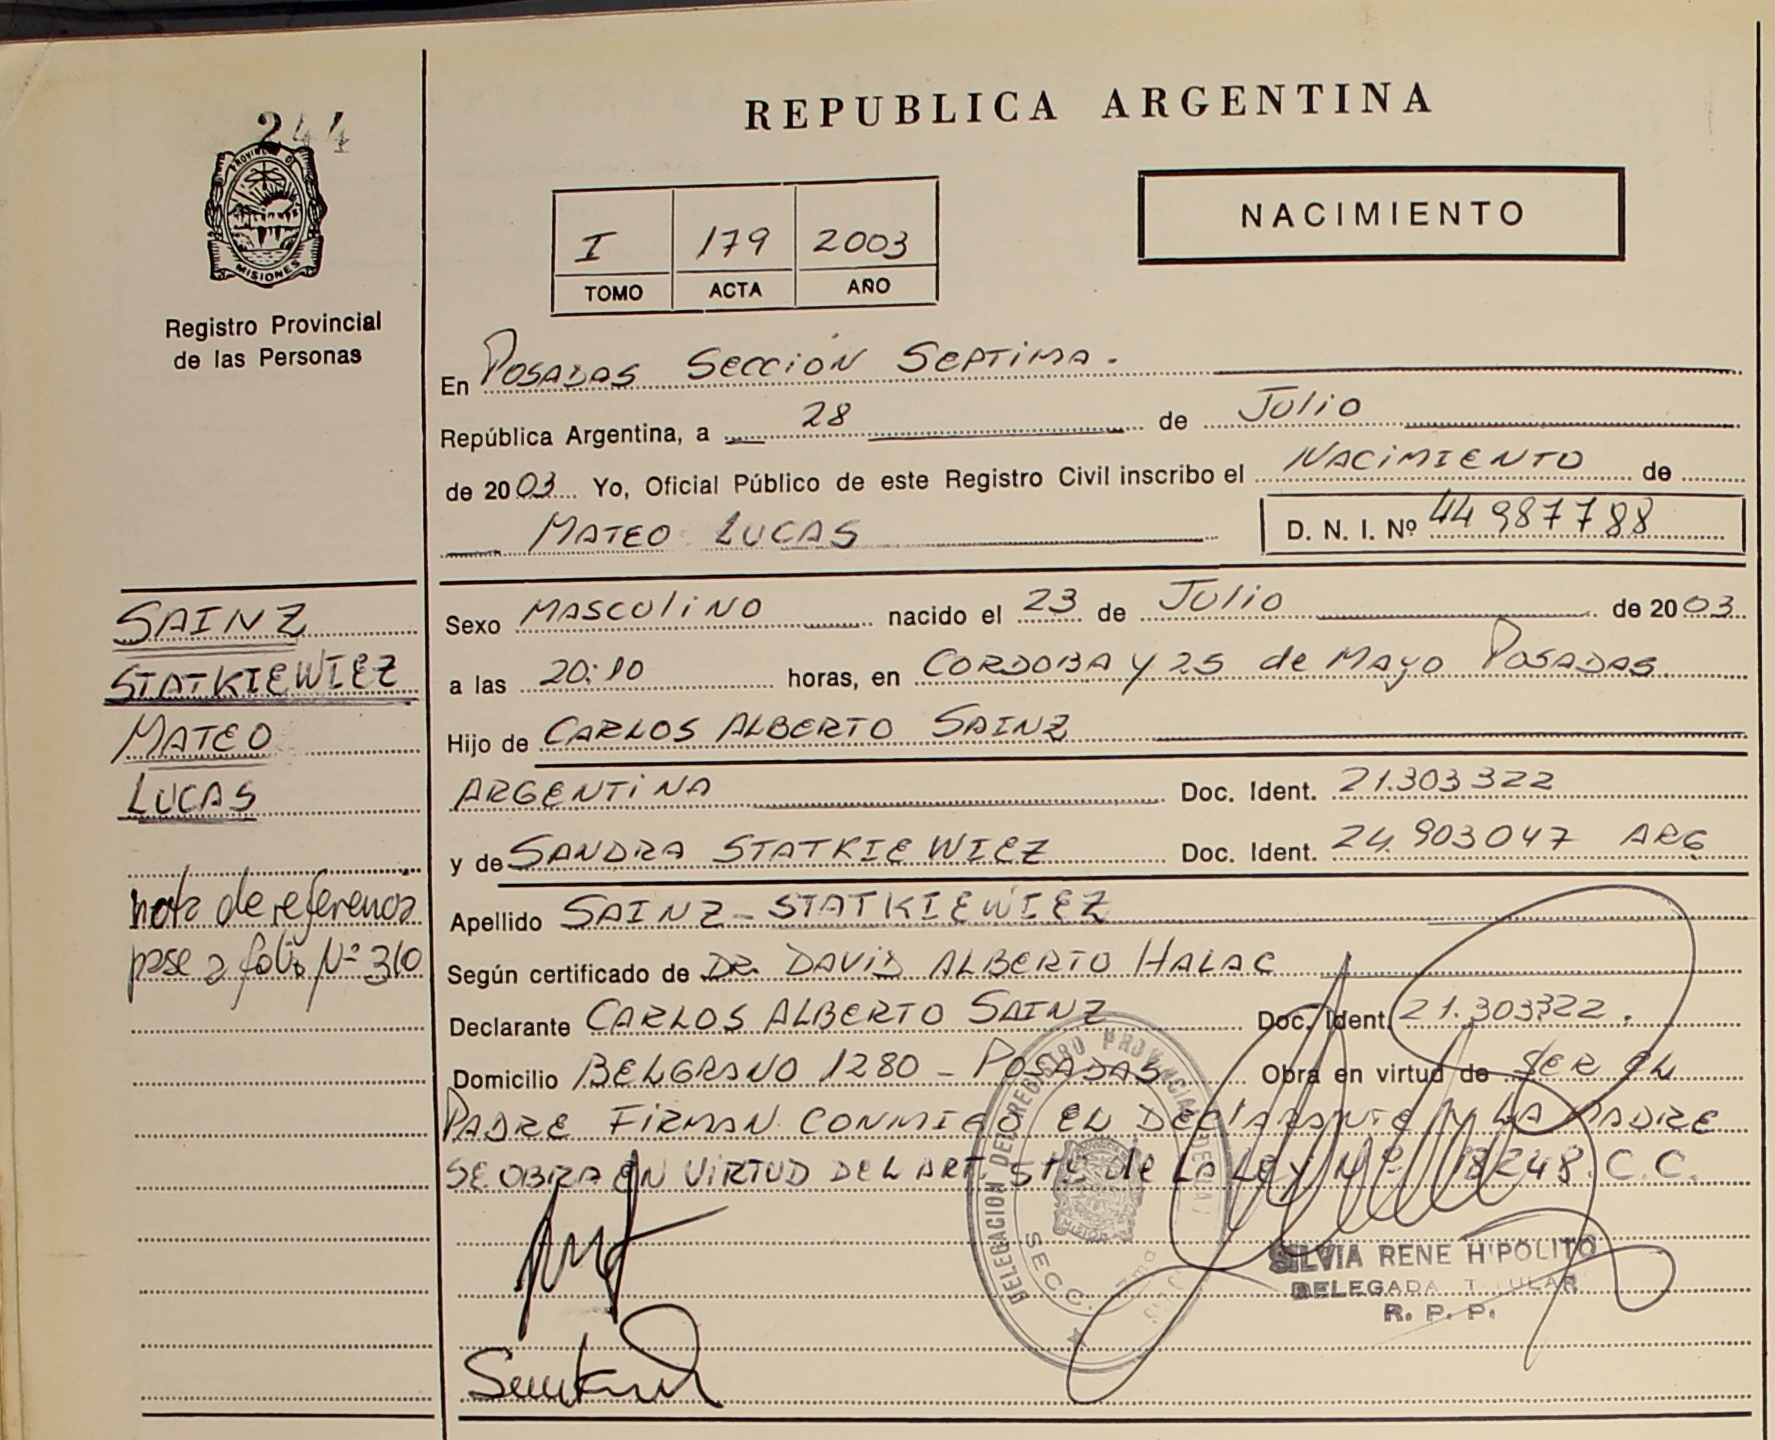 244
PROVINCIA DE
MISIONES
Registro Provincial
de las Personas
REPUBLICA ARGENTINA
NACIMIENTO
I 179 2003
TOMO ACTA AÑO
En POSADAS SECCION SEPTIMA.
República Argentina, a 28 de Julio
de 2003 Yo, Oficial Público de este Registro Civil inscribo el NACIMIENTO de
MATEO LUCAS D. N. I. Nº 44 987788
SAINZ
STATKIEWIEZ
MATEO
LUCAS
nota de referencia
pase a folio Nº 310
Sexo MASCULINO nacido el 23 de Julio de 2003
a las 20:10 horas, en CORDOBA Y 25 de Mayo POSADAS
Hijo de CARLOS ALBERTO SAINZ
ARGENTINA Doc. Ident. 21.303322
y de SANDRA STATKIEWIEZ Doc. Ident. 24.903047 ARG
Apellido SAINZ - STATKIEWIEZ
Según certificado de DR. DAVID ALBERTO HALAC
Declarante CARLOS ALBERTO SAINZ Doc. Ident. 21.303322.
Domicilio BELGRANO 1280 - POSADAS Obra en virtud de SER EL
PADRE FIRMAN CONMIGO EL DECLARANTE Y LA MADRE
SE OBRA EN VIRTUD DEL ART. 5to de LA LEY Nº 18248 C.C.
DELEGACION DEL REGISTRO PROVINCIAL DE LAS
SECC.
SILVIA RENE HIPOLITO
DELEGADA TITULAR
R. P. P.